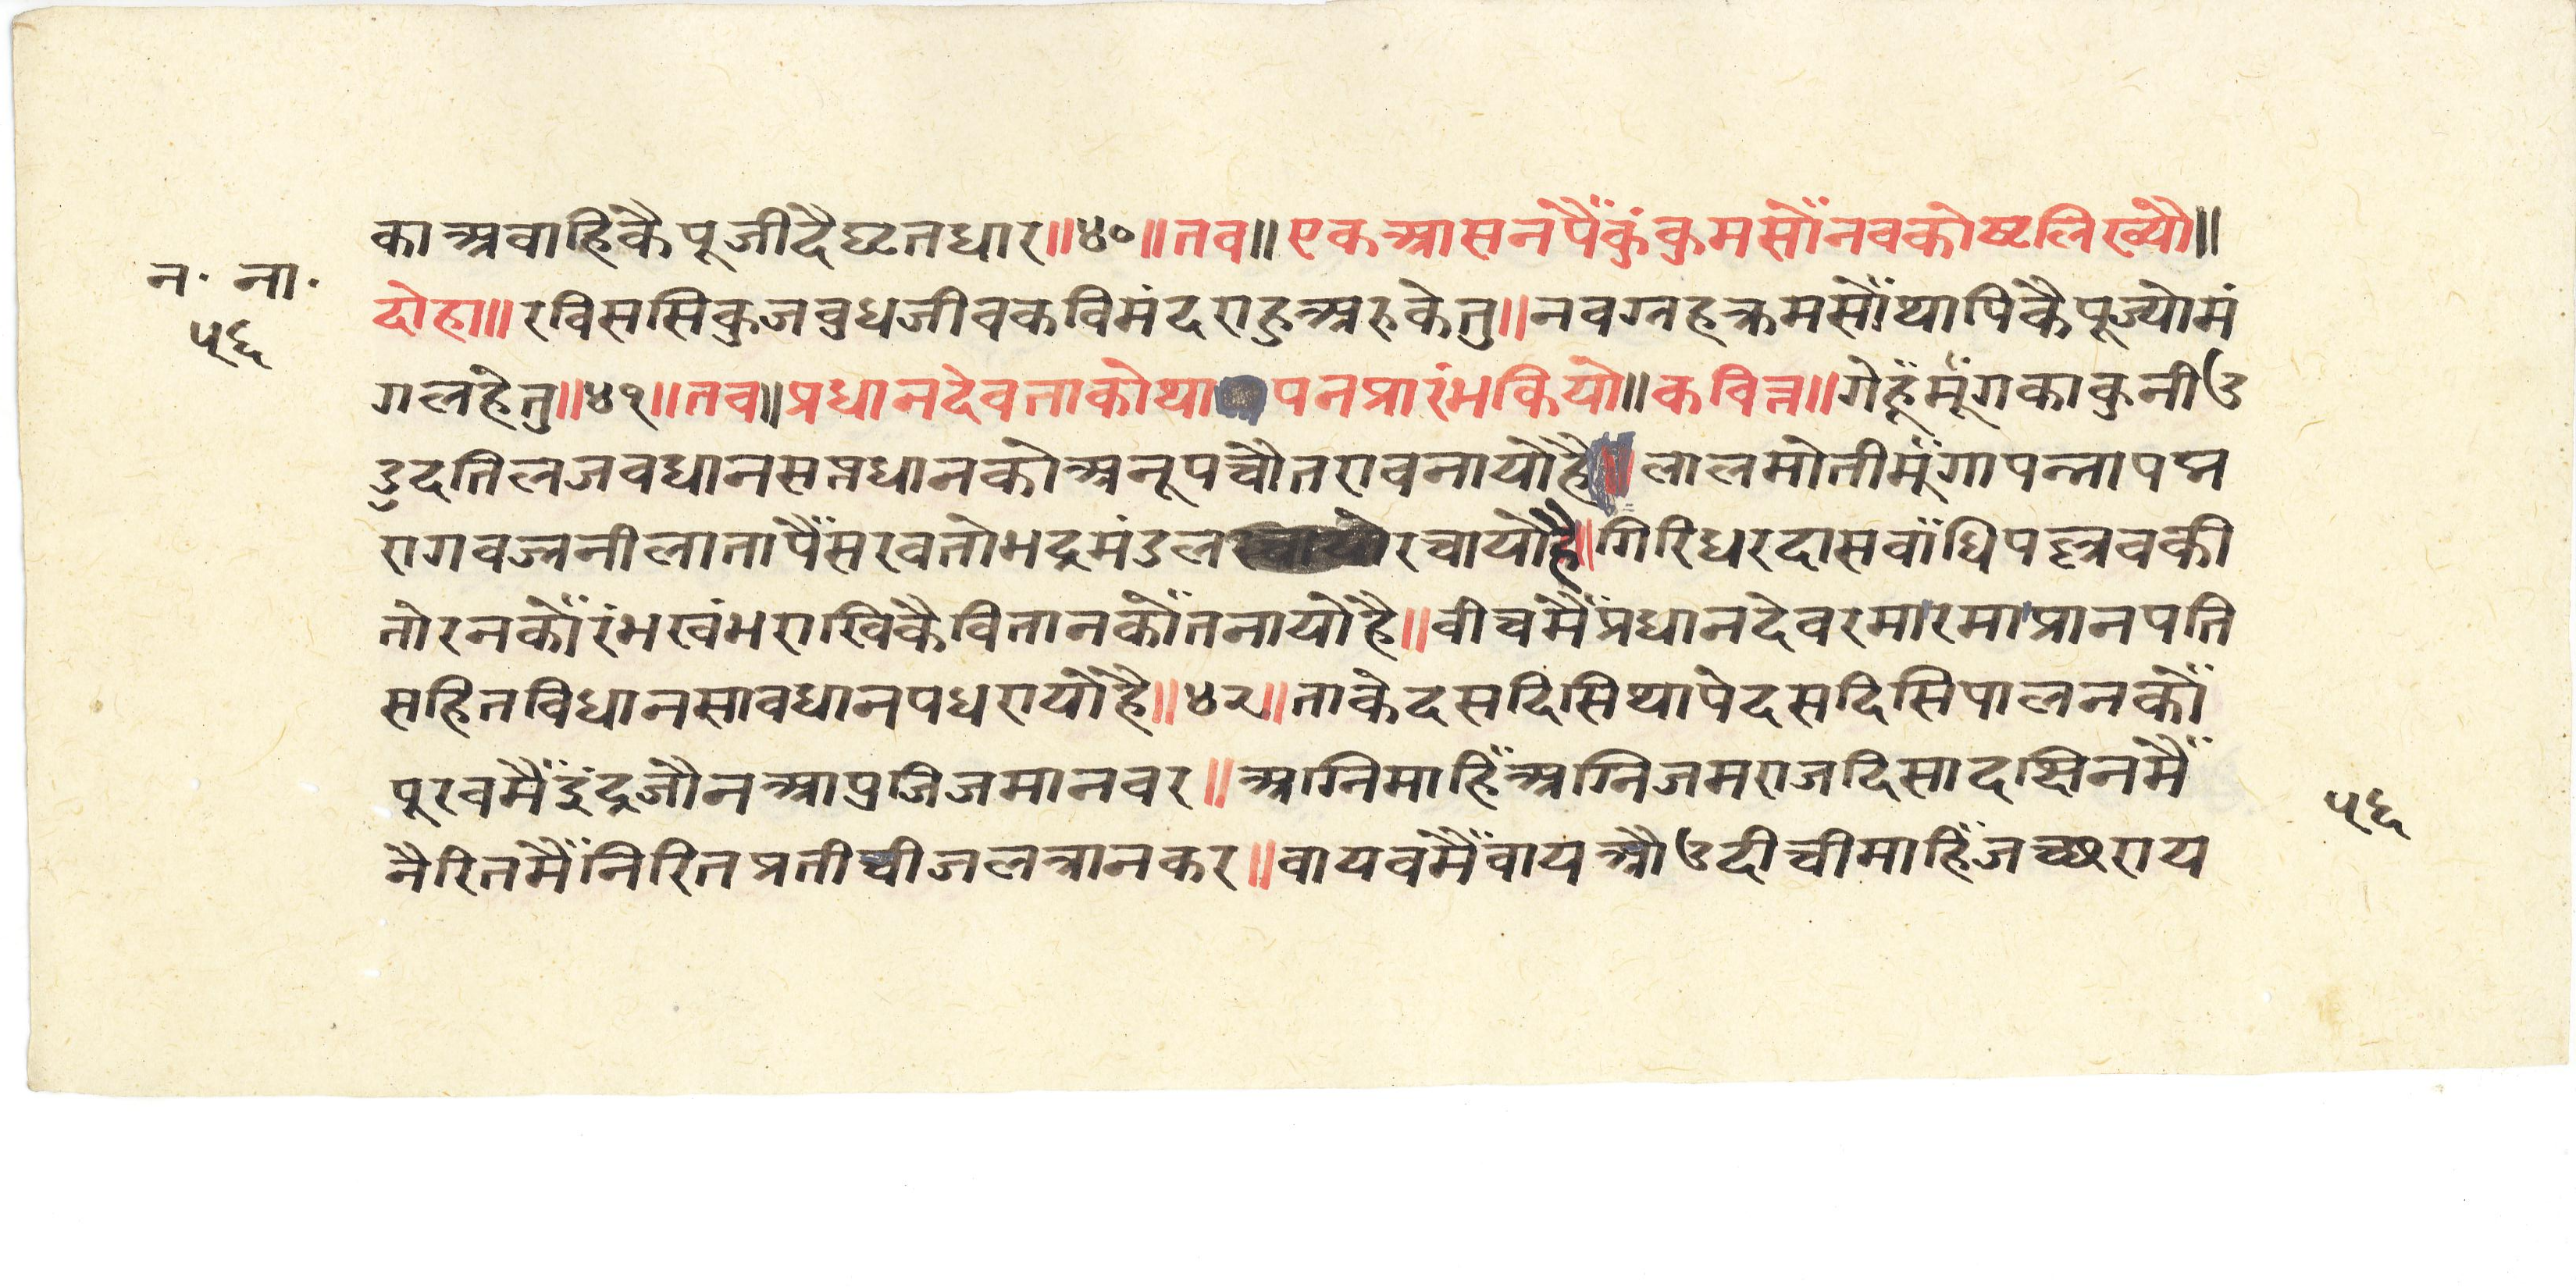 काअवाहिंकैपूजीदैघृतधार॥४०॥तव॥एकआसनपैंकुंकुमसोंनवकोष्टलिख्यौ॥
न॰ ना॰
५६
दोहा॥रविससिकुजवुधजीवकविमंदराहुअरुकेतु॥नवग्रहक्रमसोंथापिकैपूज्योमं
गलहेतु॥४१॥तव॥प्रधानदेवताकोथापनप्रारंभकियो॥कवित्त॥गेहूँमूँगकाकुनीउ
डुदतिलजवधानसप्तधानकोअनूपचौतरावनायोहै॥लालमोतीमूँगापन्नापद्म
रागवज्रनीलातापैंसरवतोभद्रमंडलरचायोहै॥गिरिधरदासवाँधिपल्लवकी
तोरनकोंरंभखंभराखिकैवितानकोंतनायोहै॥वीचमैंप्रधानदेवरमारमाप्रानपति
सहितविधानसावधानपधरायोहै॥४२॥ताकेदसदिसिथापेदसदिसिपालनकों
पुरवमैंइंद्रजौनआप्रजिजमानवर॥अग्निमाहिंअग्निजमराजदिसादछिनमैं
नैरितमैंनिरितप्रतीचीजलत्रानकर॥वायवमैंवायऔउदीचीमाहिंजच्छराय
५६